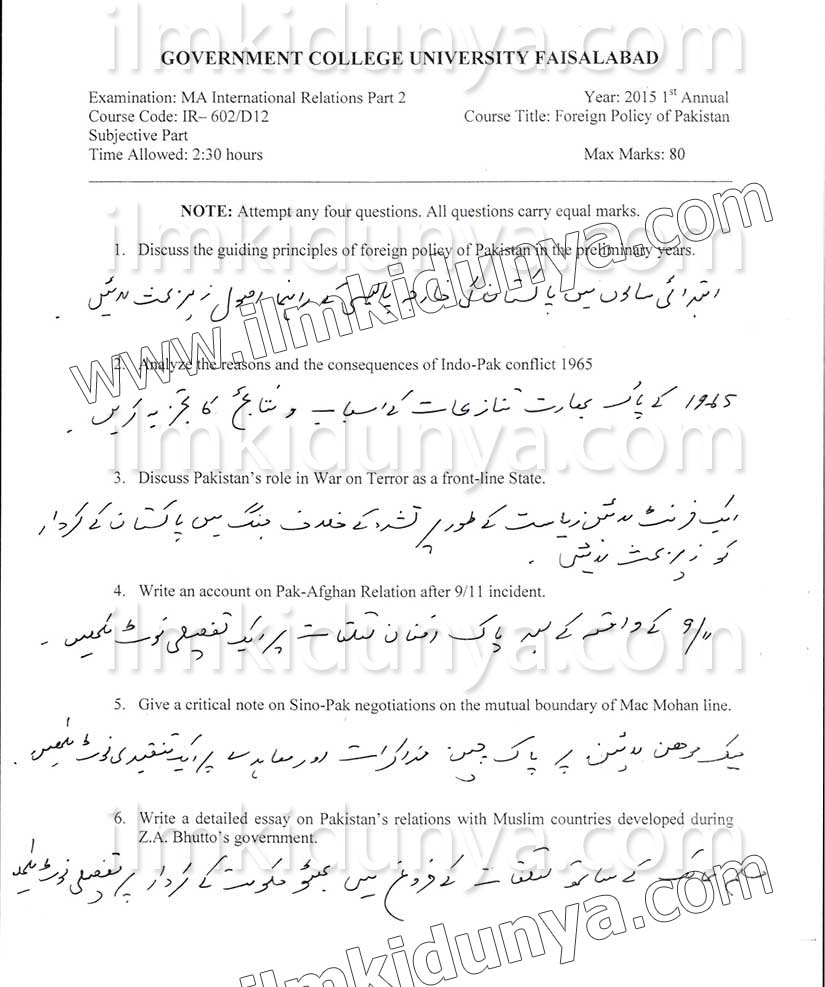 ilmkidunya.com
GOVERNMENT COLLEGE UNIVERSITY FAISALABAD
Examination: MA International Relations Part 2 Year: 2015 1st Annual
Course Code: IR– 602/D12 Course Title: Foreign Policy of Pakistan
Subjective Part
Time Allowed: 2:30 hours Max Marks: 80
NOTE: Attempt any four questions. All questions carry equal marks.
ilmkidunya.com
1. Discuss the guiding principles of foreign policy of Pakistan in the preliminary years.
ابتدائی سالوں میں پاکستان کی خارجہ پالیسی کے راہنما اصول زیر بحث لائیں ۔
www.ilmkidunya.com
2. Analyze the reasons and the consequences of Indo-Pak conflict 1965
1965 کے پاک بھارت تنازعات کے اسباب و نتائج کا تجزیہ کریں ۔
ilmkidunya.com
3. Discuss Pakistan's role in War on Terror as a front-line State.
ایک فرنٹ لائن ریاست کے طور پر تشدد کے خلاف جنگ میں پاکستان کے کردار
کو زیر بحث لائیں ۔
4. Write an account on Pak-Afghan Relation after 9/11 incident.
9/11 کے واقعہ کے بعد پاک افغان تعلقات پر ایک تفصیلی نوٹ لکھیں ۔
ilmkidunya.com
5. Give a critical note on Sino-Pak negotiations on the mutual boundary of Mac Mohan line.
میک موهن لائن پر پاک چین مذاکرات اور معاہدے پر ایک تنقیدی نوٹ لکھیں ۔
ilmkidunya.com
6. Write a detailed essay on Pakistan's relations with Muslim countries developed during
Z.A. Bhutto's government.
کے ساتھ تعلقات کے فروغ میں بھٹو حکومت کے کردار پر تفصیلی نوٹ لکھیں
www.ilmkidunya.com